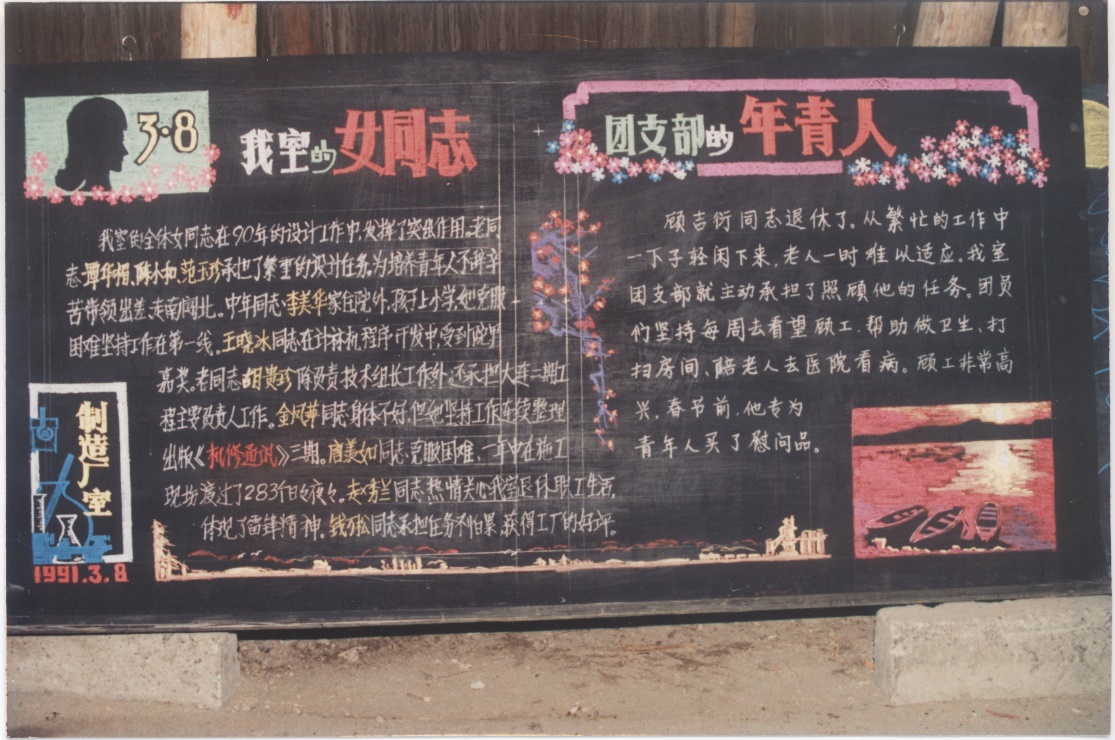 3·8
我室的女同志
我室的全体女同志在90年的设计工作中,发挥了突出作用。老同
志谭年相、陈小和、范玉珍承担了繁重的设计任务,为培养青年人不辞辛
苦带领出差、走南闯北。中年同志李美华家住院外,孩子上小学,她克服
困难坚持工作在第一线。王晓冰同志在计算机程序开发中,受到院里
嘉奖。老同志胡贵珍除负责技术组长工作外,还承担大连二期工
程主要负责人工作。金凤萍同志身体不好,但她坚持工作连续整理
出版《机修通讯》三期。唐美如同志克服困难,一年中在施工
现场渡过了283个日日夜夜。赵秀兰同志热情关心我室退休职工生活,
体现了雷锋精神。钱万松同志承担任务不怕累,获得工厂的好评。
制造厂室
1991.3.8
团支部的年青人
顾吉衍同志退休了。从繁忙的工作中
一下子轻闲下来,老人一时难以适应。我室
团支部就主动承担了照顾他的任务。团员
们坚持每周去看望顾工,帮助做卫生、打
扫房间、陪老人去医院看病。顾工非常高
兴。春节前,他专为
青年人买了慰问品。